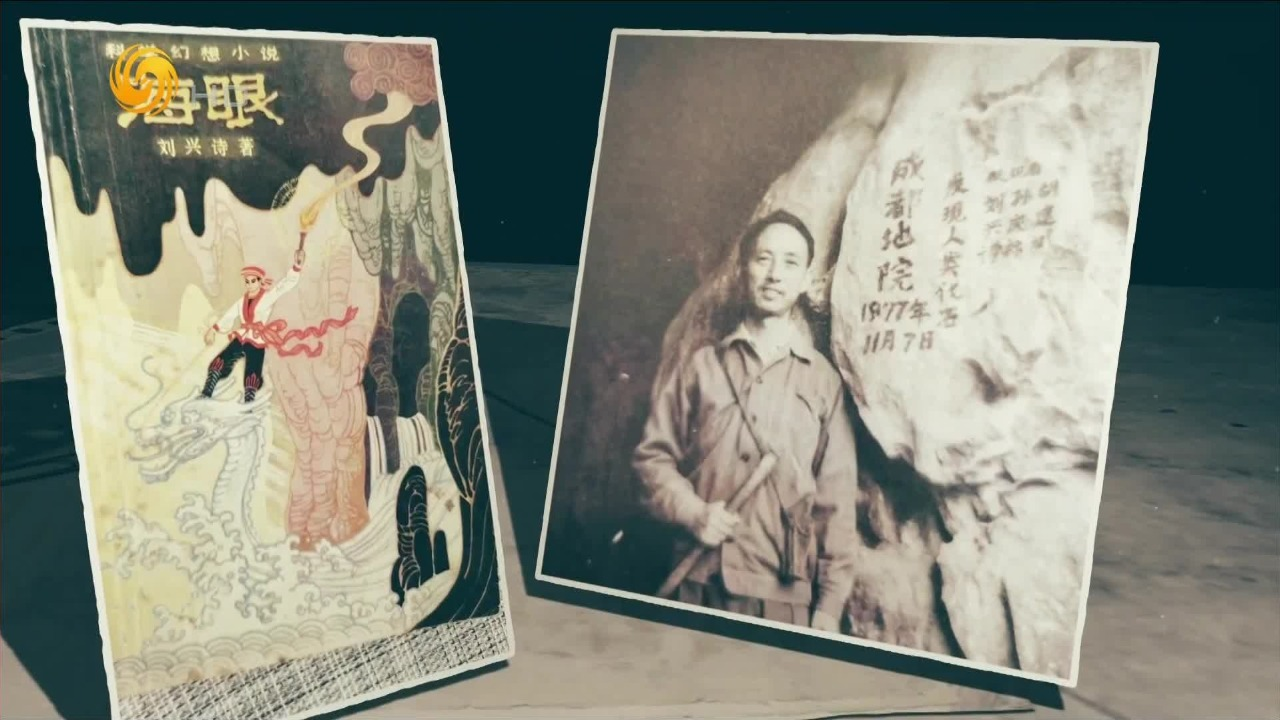 科学幻想小说
海眼
刘兴诗著
成都地院
1977年
11月7日
发现人类化石
刘兴诗
孙
胡